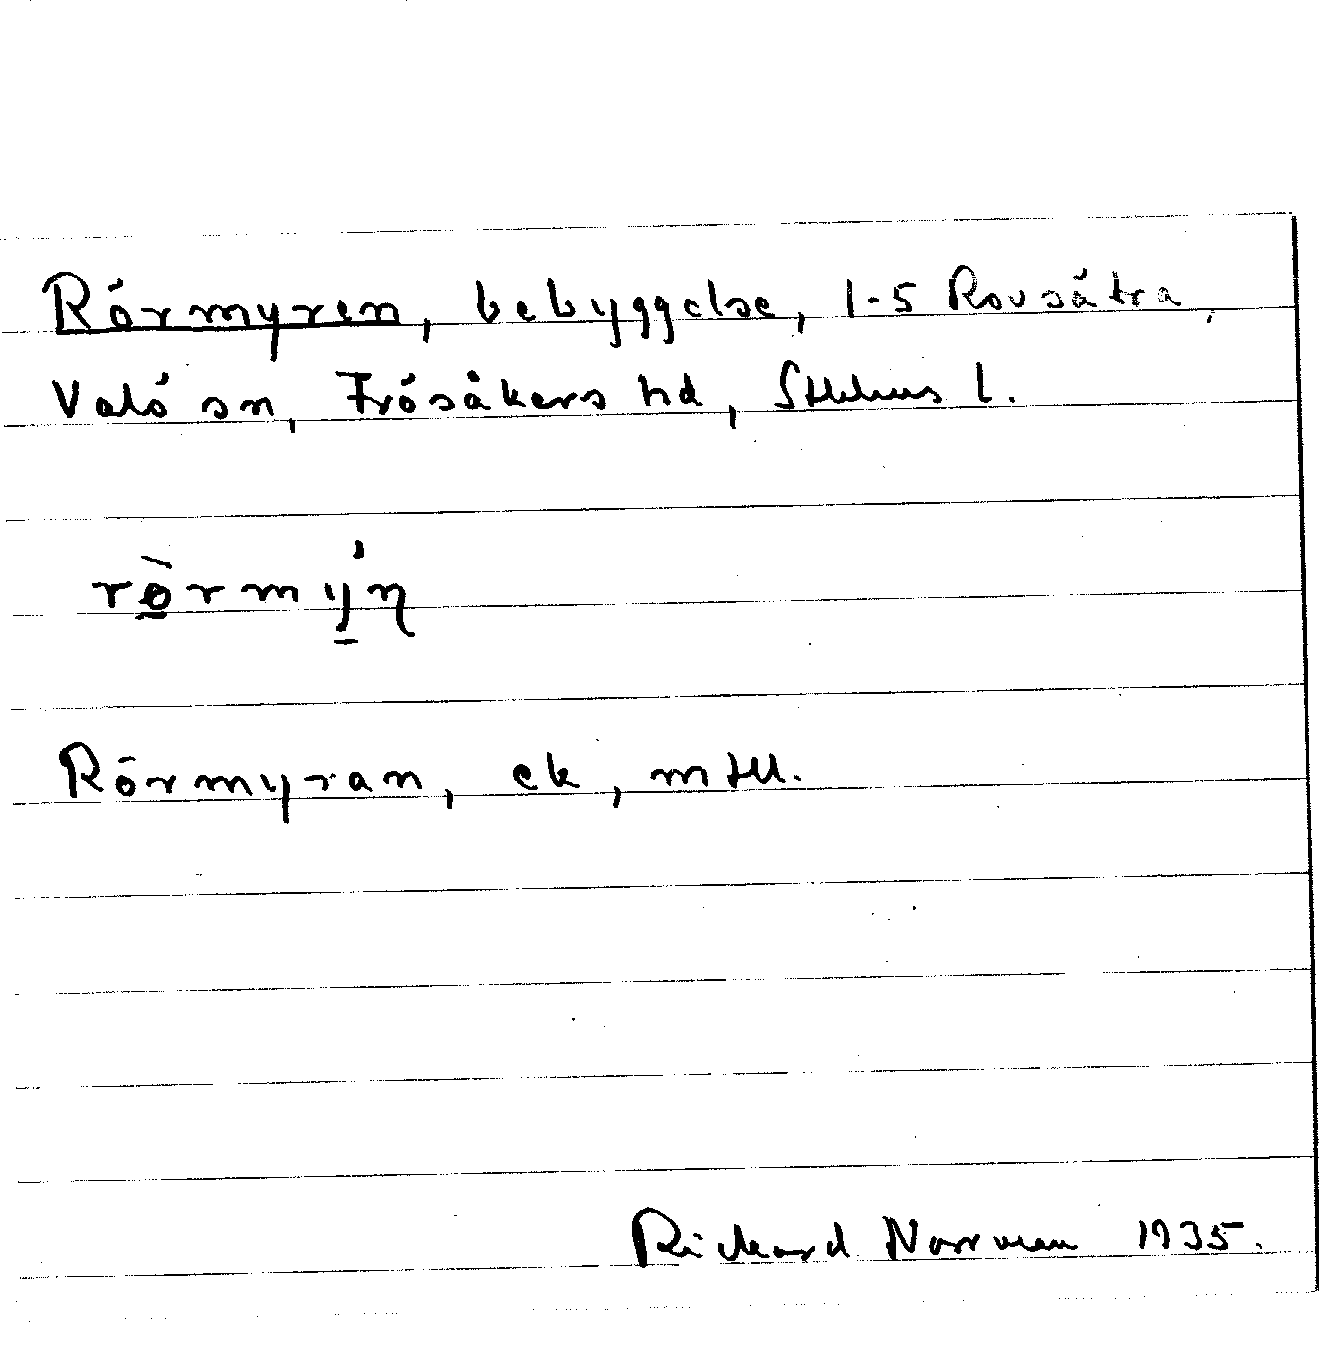 Rörmyren, bebyggelse, 1-5 Rovsätra,
Valö sn, Frösåkers hd, Sthlms l.
Rörmyran, ek, mtll.
Rickard Norrman 1935.